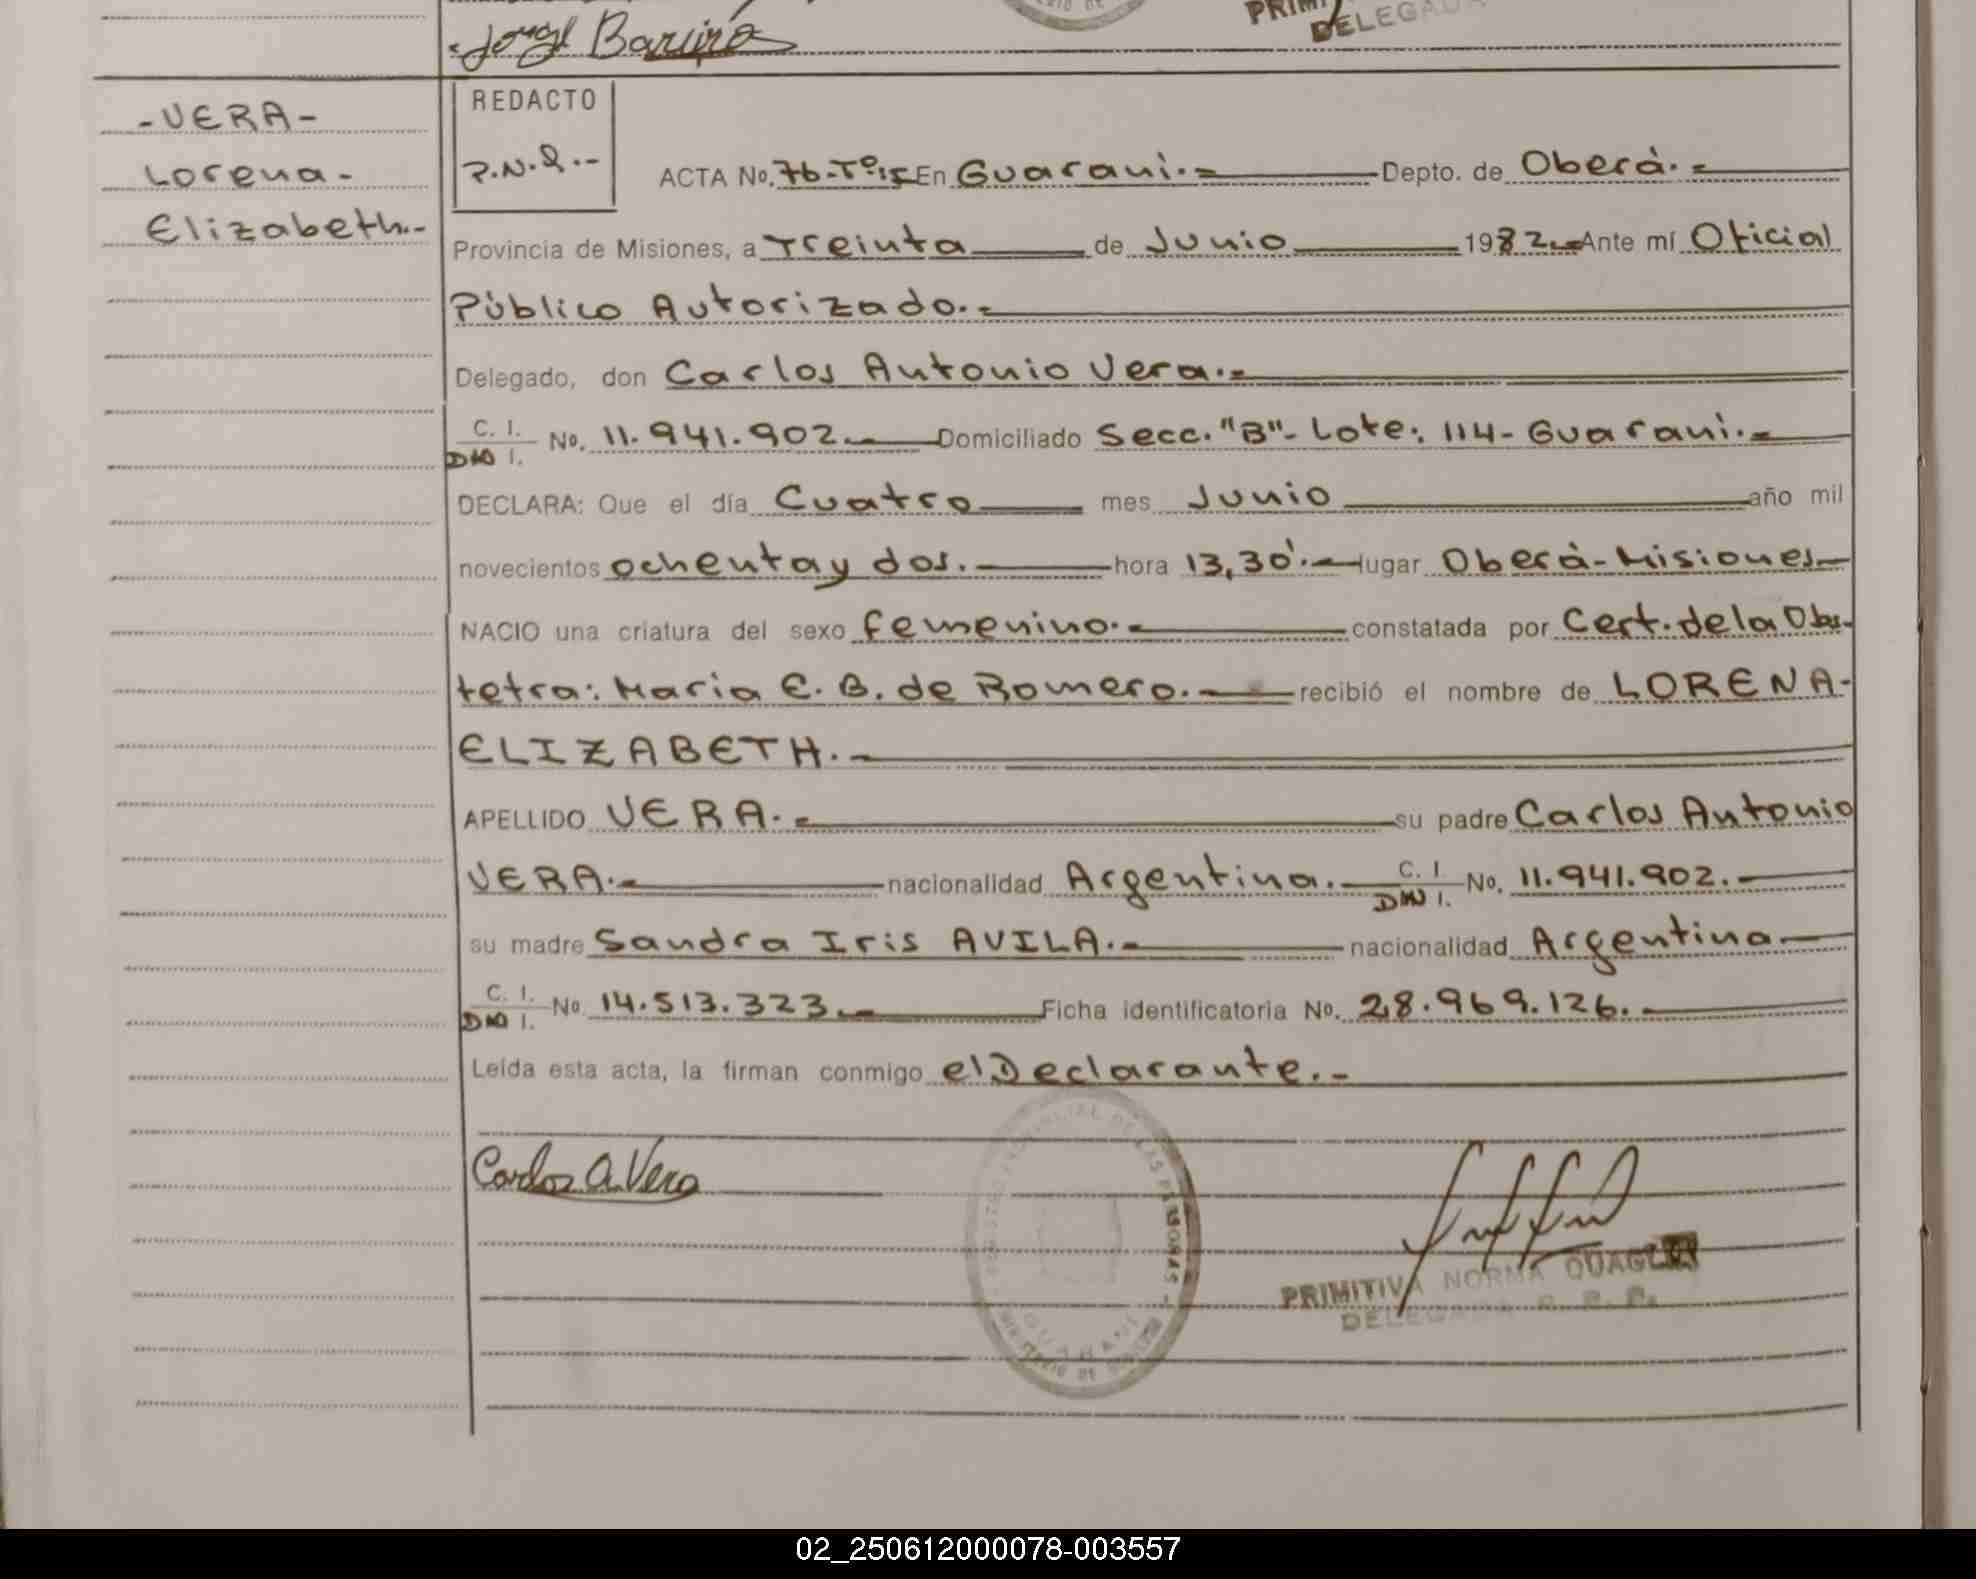 Jorge
PRIMI
DELEGADA
-VERA-
Lorena-
Elizabeth.-
REDACTO
P.N.Q.--
ACTA No. 76-Tº:15 En Guaraní.- Depto. de Oberá.-
Provincia de Misiones, a Treinta de Junio 1982.- Ante mí Oficial
Público Autorizado.-
Delegado, don Carlos Antonio Vera.-
C. I.
DNI I. No. 11.941.902.- Domiciliado Secc. "B"- Lote: 114- Guaraní.-
DECLARA: Que el día Cuatro mes Junio año mil
novecientos ochenta y dos.- hora 13,30'.- lugar Oberá-Misiones-
NACIO una criatura del sexo femenino.- constatada por Cert. de la Obs-
tetra: Maria E. B. de Romero.- recibió el nombre de LORENA-
ELIZABETH.-
APELLIDO VERA.- su padre Carlos Antonio
VERA.- nacionalidad Argentina.- C. I.
DNI I. No. 11.941.902.-
su madre Sandra Iris AVILA.- nacionalidad Argentina-
C. I.
DNI I. No. 14.513.323.- Ficha identificatoria No. 28.969.126.-
Leída esta acta, la firman conmigo el Declarante.-
Carlos A. Vera
PRIMITIVA NORMA QUAGLIA
DELEGADA R. P.
GUARANI
02_250612000078-003557